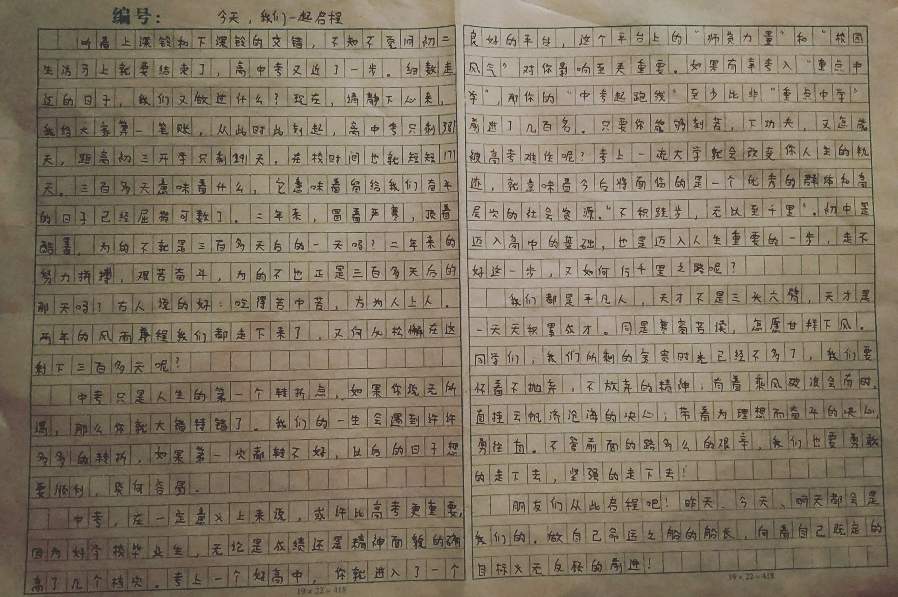 编号：
今天，我们一起启程
听着上课铃和下课铃的交错，不知不觉间初二
生活马上就要结束了，离中考又近了一步。细数走
过的日子，我们又做过什么？现在，请静下心来，
我给大家算一笔账，从此时此刻起，离中考只剩381
天，距离初三开学只剩 天，在校时间也就短短171
天。三百多天意味着什么，它意味着留给我们奋斗
的日子已经屈指可数了。二年来，冒着严寒，顶着
酷暑，为的不就是三百多天后的一天吗？二年来的
努力拼搏，艰苦奋斗，为的不也正是三百多天后的
那天吗？古人说的好：吃得苦中苦，方为人上人。
两年的风雨兼程我们都走下来了，又何以松懈在这
剩下三百多天呢？
中考只是人生的第一个转折点，如果你说无所
谓，那么你就大错特错了。我们的一生会遇到许许
多多的转折，如果第一次都转不好，以后的日子想
要顺利，谈何容易。
中考，在一定意义上来说，或许比高考更重要，
因为好学校毕业生，无论是成绩还是精神面貌的确
高了几个档次。考上一个好高中，你就进入了一个
19×22=418
良好的平台，这个平台上的“师资力量”和“校园
风气”对你影响至关重要。如果有幸考入“重点中
学”，那你的“中考起跑线”至少比非“重点中学”
前进了几百名。只要你能够刻苦，下功夫，又怎能
被高考难住呢？考上一流大学就会改变你人生的轨
迹，就意味着今后将面临的是一个优秀的群体和高
层次的社会资源。“不积跬步，无以至千里”。初中是
迈入高中的基础，也是迈入人生重要的一步，走不
好这一步，又如何行千里之路呢？
我们都是平凡人，天才不是三头六臂，天才是
一天天积累成才。同是寒窗苦读，怎愿甘拜下风。
同学们，我们所剩的宝贵时光已经不多了，我们要
怀着不抛弃，不放弃的精神；有着乘风破浪会有时，
直挂云帆济沧海的决心；带着为理想而奋斗的决心，
勇往直。不管前面的路多么的艰辛，我们也要勇敢
的走下去，坚强的走下去！
朋友们从此启程吧！昨天、今天、明天都会是
我们的。做自己命运之船的船长，向着自己既定的
目标义无反顾的前进！
19×22=418